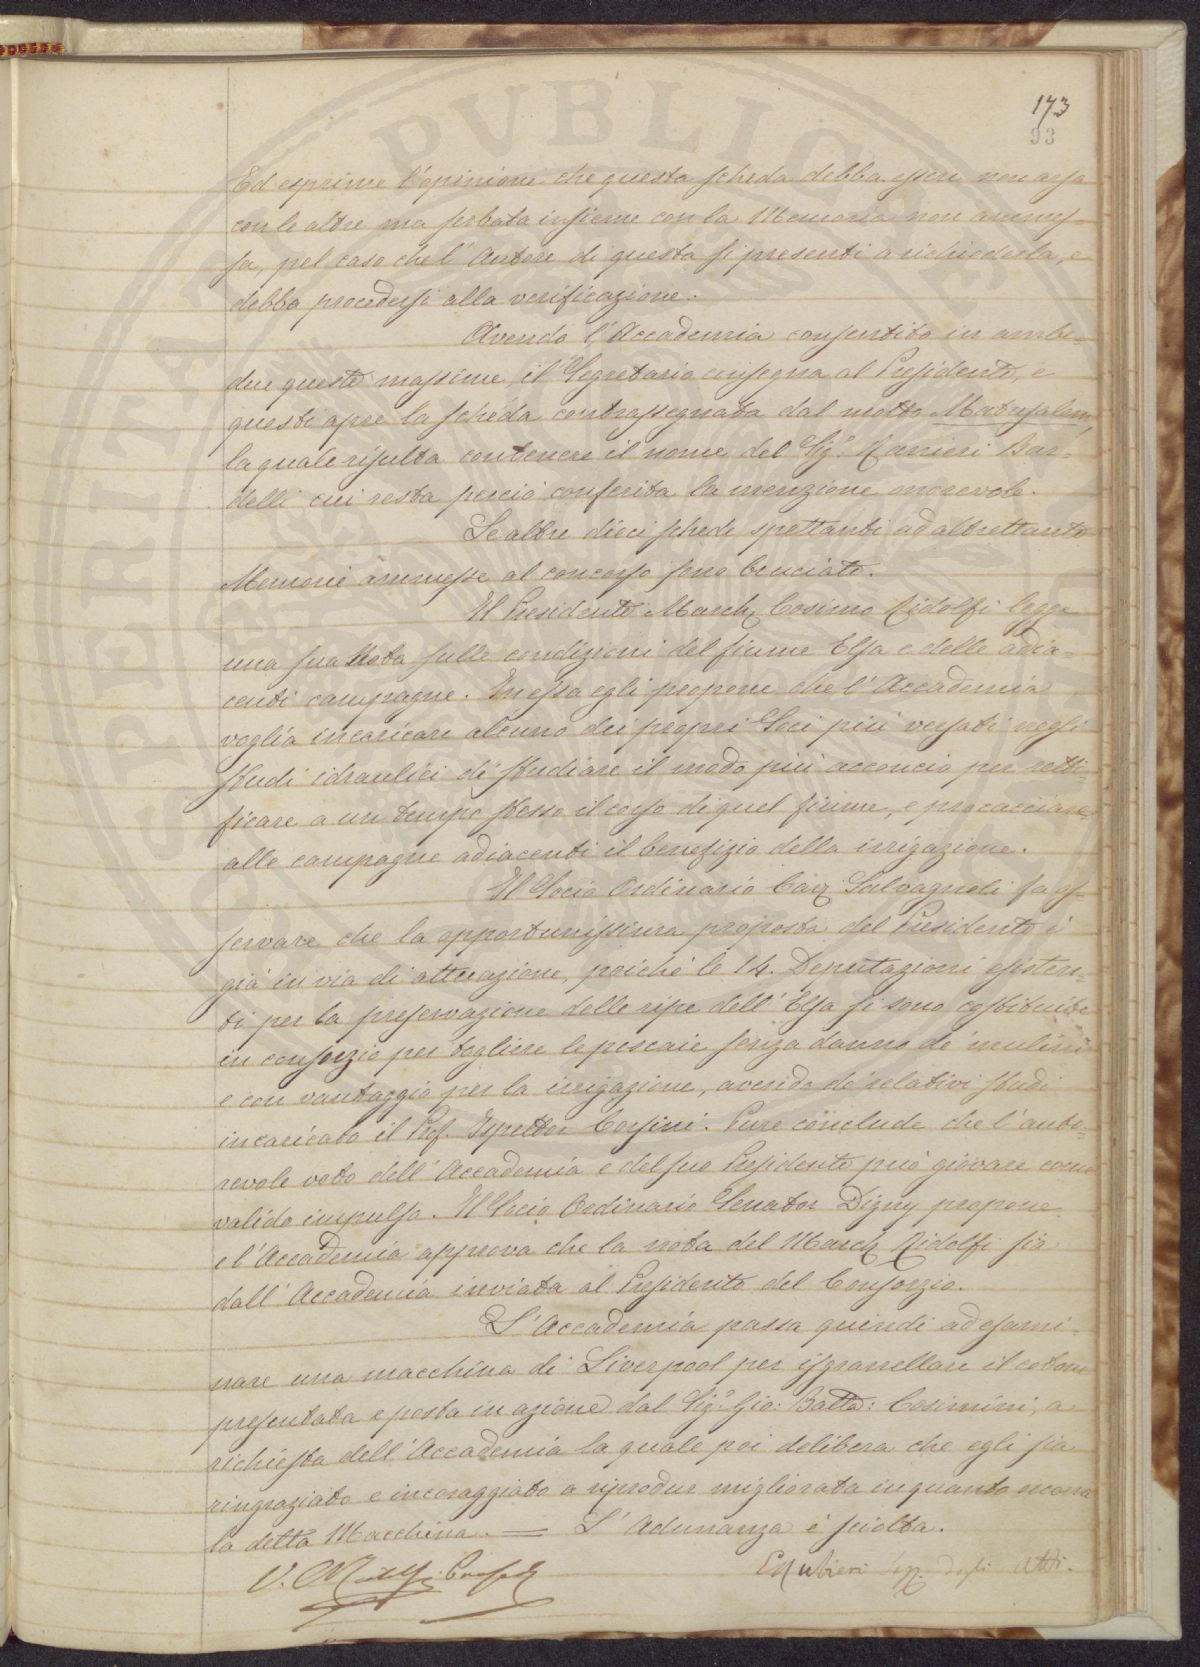 173
93
Ed esprime l'opinione che questa scheda debba essere non arsa
con le altre ma serbata insieme con la Memoria non ammes-
sa, pel caso che l'Autore di questa si presenti a richiederla, e
debba procedersi alla verificazione.
Avendo l'Accademia consentito in ambe-
due queste massime, il Segretario consegna al Presidente, e
questi apre la scheda contrassegnata dal motto Matusalem,
la quale risulta contenere il nome del Sig.r Ranieri Bar-
delli cui resta perciò conferita la menzione onorevole.
Le altre dieci schede spettanti ad altrettante
Memorie ammesse al concorso sono bruciate.
Il Presidente March. Cosimo Ridolfi legge
una sua Nota sulle condizioni del fiume Elsa e delle adia-
centi campagne. In essa egli propone che l'Accademia
voglia incaricare alcuno dei propri Soci più versati negli
studi idraulici di studiare il modo più acconcio per retti-
ficare a un tempo stesso il corso di quel fiume, e procacciare
alle campagne adiacenti il benefizio della irrigazione.
Il Socio Ordinario Cav. Salvagnoli fa os-
servare che la opportunissima proposta del Presidente è
già in via di attuazione, poiché le 14. Deputazioni esisten-
ti per la preservazione delle ripe dell'Elsa si sono costituite
in consorzio per togliere le pescaie senza danno de' mulini
e con vantaggio per la irrigazione, avendo de' relativi studi
incaricato il Prof. Ispettor Corsini. Pure conclude che l'auto-
revole voto dell'Accademia e del suo Presidente può giovare come
valido impulso. Il Socio Ordinario Senator Digny propone
e l'Accademia approva che la nota del March. Ridolfi sia
dall'Accademia inviata al Presidente del Consorzio.
L'Accademia passa quindi ad esami-
nare una macchina di Liverpool per isgranellare il cotone
presentata e posta in azione dal Sig.r Gio: Batta: Cosimini, a
richiesta dell'Accademia la quale poi delibera che egli sia
ringraziato e incoraggiato a riprodur migliorata in quanto occorra
la detta Macchina. = L'Adunanza è sciolta.
V. C. Ridolfi
E. Rubieri Seg. degli Atti.